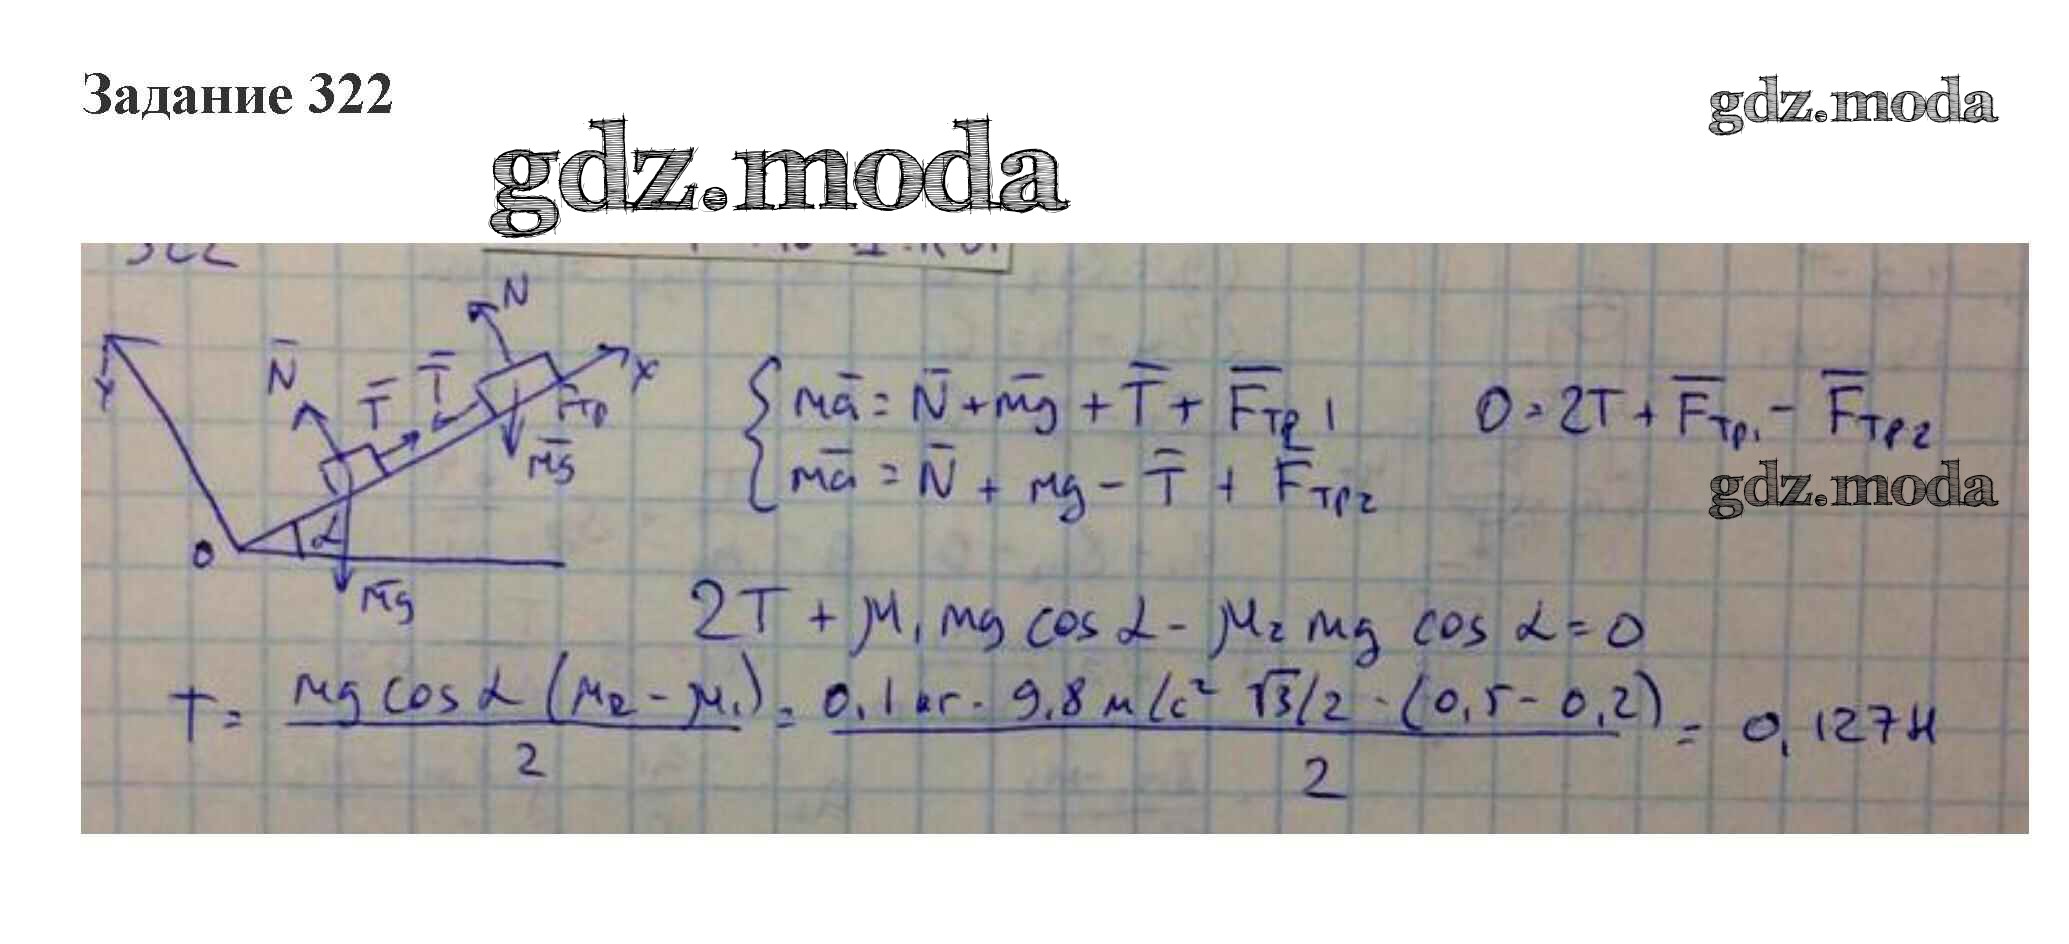 Задание 322
gdz.moda
gdz.moda
322
N̄
T̄
T̄
N
X
Y
Fтр
m̄g
0
α
m̄g
mā = N̄ + m̄g + T̄ + F̄тр1
mā = N̄ + mg - T̄ + F̄тр2
0 = 2T + F̄тр1 - F̄тр2
gdz.moda
2T + μ1 mg cos α - μ2 mg cos α = 0
T = mg cos α (μ2 - μ1) / 2 = 0,1 кг · 9,8 м/с² √3/2 · (0,5 - 0,2) / 2 = 0,127 Н